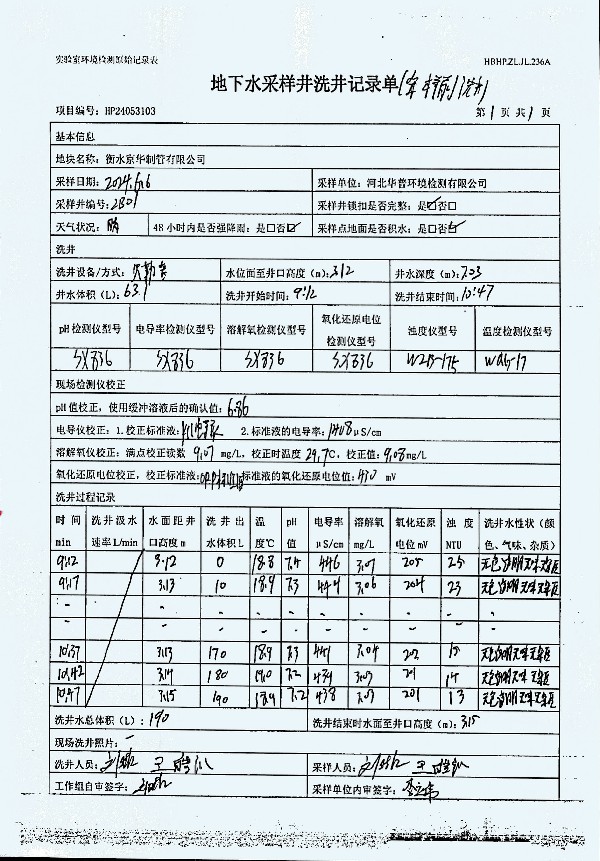 实验室环境检测原始记录表 HBHP.ZL.JL.236A
地下水采样井洗井记录单
项目编号：HP24053103 第1页 共1页
基本信息
地块名称：衡水京华制管有限公司
采样日期：2024.6.16 采样单位：河北华普环境检测有限公司
采样井编号：2B01 采样井锁扣是否完整：是☑否□
天气状况：晴 48小时内是否强降雨：是□否☑ 采样点地面是否积水：是□否☑
洗井
洗井设备/方式：贝勒管 水位面至井口高度（m）：3.12 井水深度（m）：7.03
井水体积（L）：63.1 洗井开始时间：9:12 洗井结束时间：10:47
pH检测仪型号 电导率检测仪型号 溶解氧检测仪型号 氧化还原电位检测仪型号 浊度仪型号 温度检测仪型号
SX836 SX836 SX836 SX836 WZB-175 WQG-17
现场检测仪校正
pH值校正，使用缓冲溶液后的确认值：6.86
电导仪校正：1.校正标准液： 2.标准液的电导率：1408μS/cm
溶解氧仪校正：满点校正读数 9.07 mg/L，校正时温度 29.7℃，校正值：9.08mg/L
氧化还原电位校正，校正标准液：ORP标准液 标准液的氧化还原电位值：430 mV
洗井过程记录
时间 min 洗井汲水速率L/min 水面距井口高度m 洗井出水体积L 温度℃ pH值 电导率μS/cm 溶解氧mg/L 氧化还原电位mV 浊度NTU 洗井水性状（颜色、气味、杂质）
9:12 3.12 0 18.8 7.4 446 3.07 205 25 无色透明无味无杂质
9:17 3.13 10 18.9 7.3 444 3.06 204 23 无色透明无味无杂质
- - - - - - - - - -
- - - - - - - - - -
10:37 3.13 170 18.9 7.3 441 3.04 202 15 无色透明无味无杂质
10:42 3.14 180 19.0 7.2 439 3.03 201 14 无色透明无味无杂质
10:47 3.15 190 7.2 438 3.03 201 13 无色透明无味无杂质
洗井水总体积（L）：190 洗井结束时水面至井口高度（m）：3.15
现场洗井照片：-
洗井人员： 采样人员：
工作组自审签字： 采样单位内审签字：